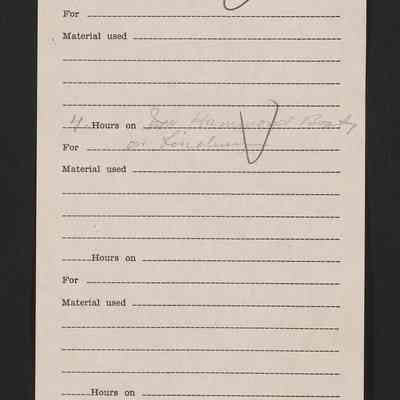 For
Material used
4 Hours on Mr Hammond Booty
For on Linoleum
Material used
Hours on
For
Material used
Hours on